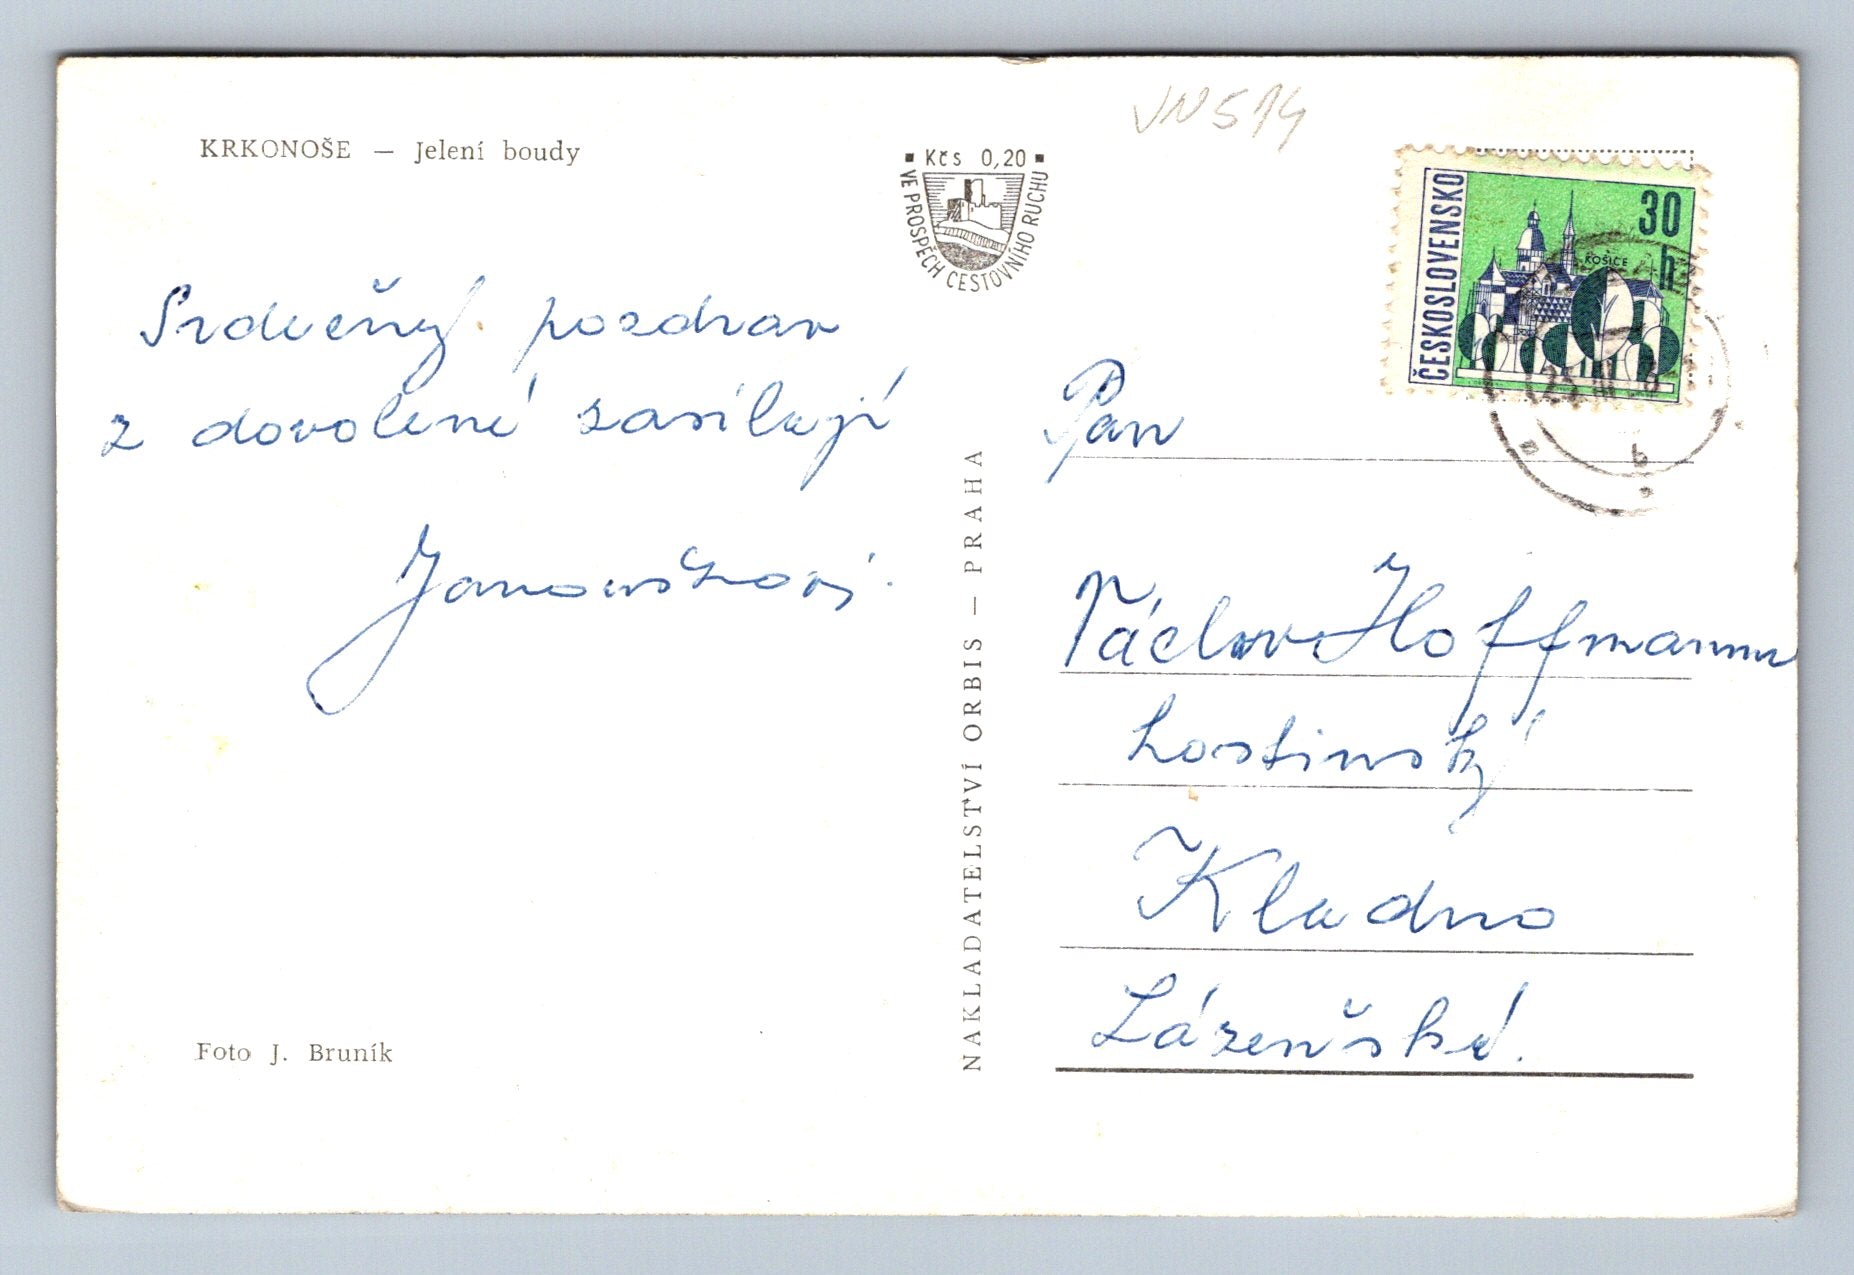 KRKONOŠE — Jelení boudy
Kčs 0,20
VE PROSPĚCH CESTOVNÍHO RUCHU
VN 514
ČESKOSLOVENSKO
30
h
KOŠICE
Srdečný pozdrav
z dovolené zasílají
Janouškovi.
NAKLADATELSTVÍ ORBIS — PRAHA
Pan
Václav Hoffmann
Lostinský
Kladno
Lázeňská.
Foto J. Bruník